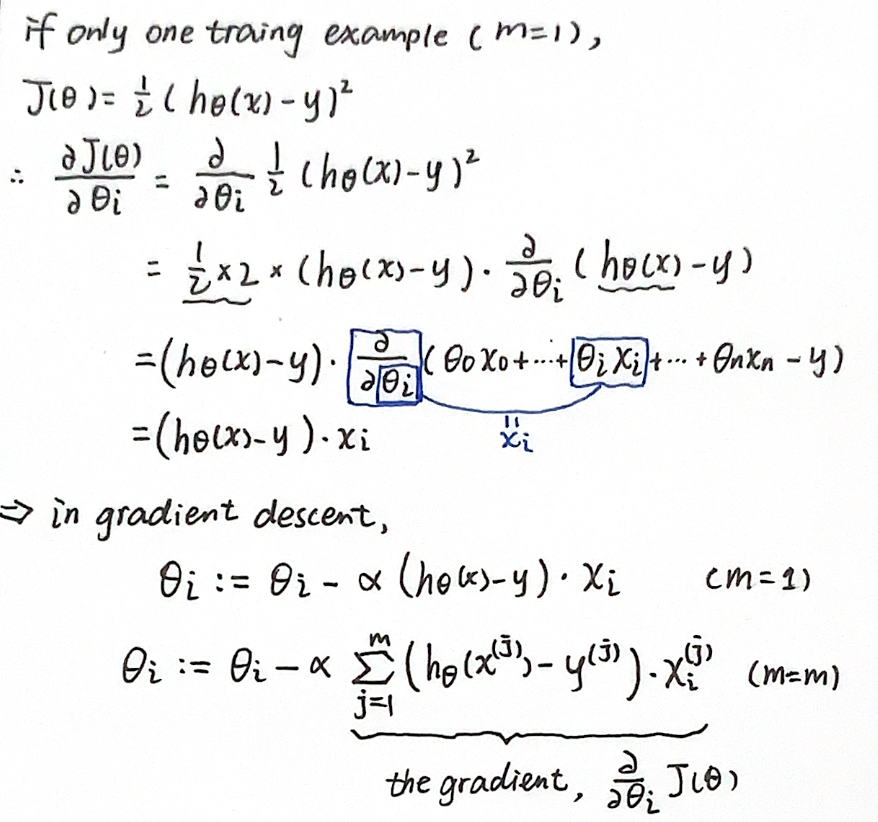 if only one traing example (m=1),
J(θ)= 1/2 (hθ(x)-y)²
∴ ∂J(θ)/∂θi = ∂/∂θi 1/2 (hθ(x)-y)²
= 1/2 × 2 × (hθ(x)-y) · ∂/∂θi (hθ(x)-y)
=(hθ(x)-y) · ∂/∂θi (θ0x0+···+θixi+···+θnxn-y)
=(hθ(x)-y)·xi
= xi
⇒ in gradient descent,
θi := θi - α (hθ(x)-y)·xi (m=1)
θi := θi - α Σ_{j=1}^{m} (hθ(x^(j))-y^(j))·xi^(j) (m=m)
the gradient, ∂/∂θi J(θ)